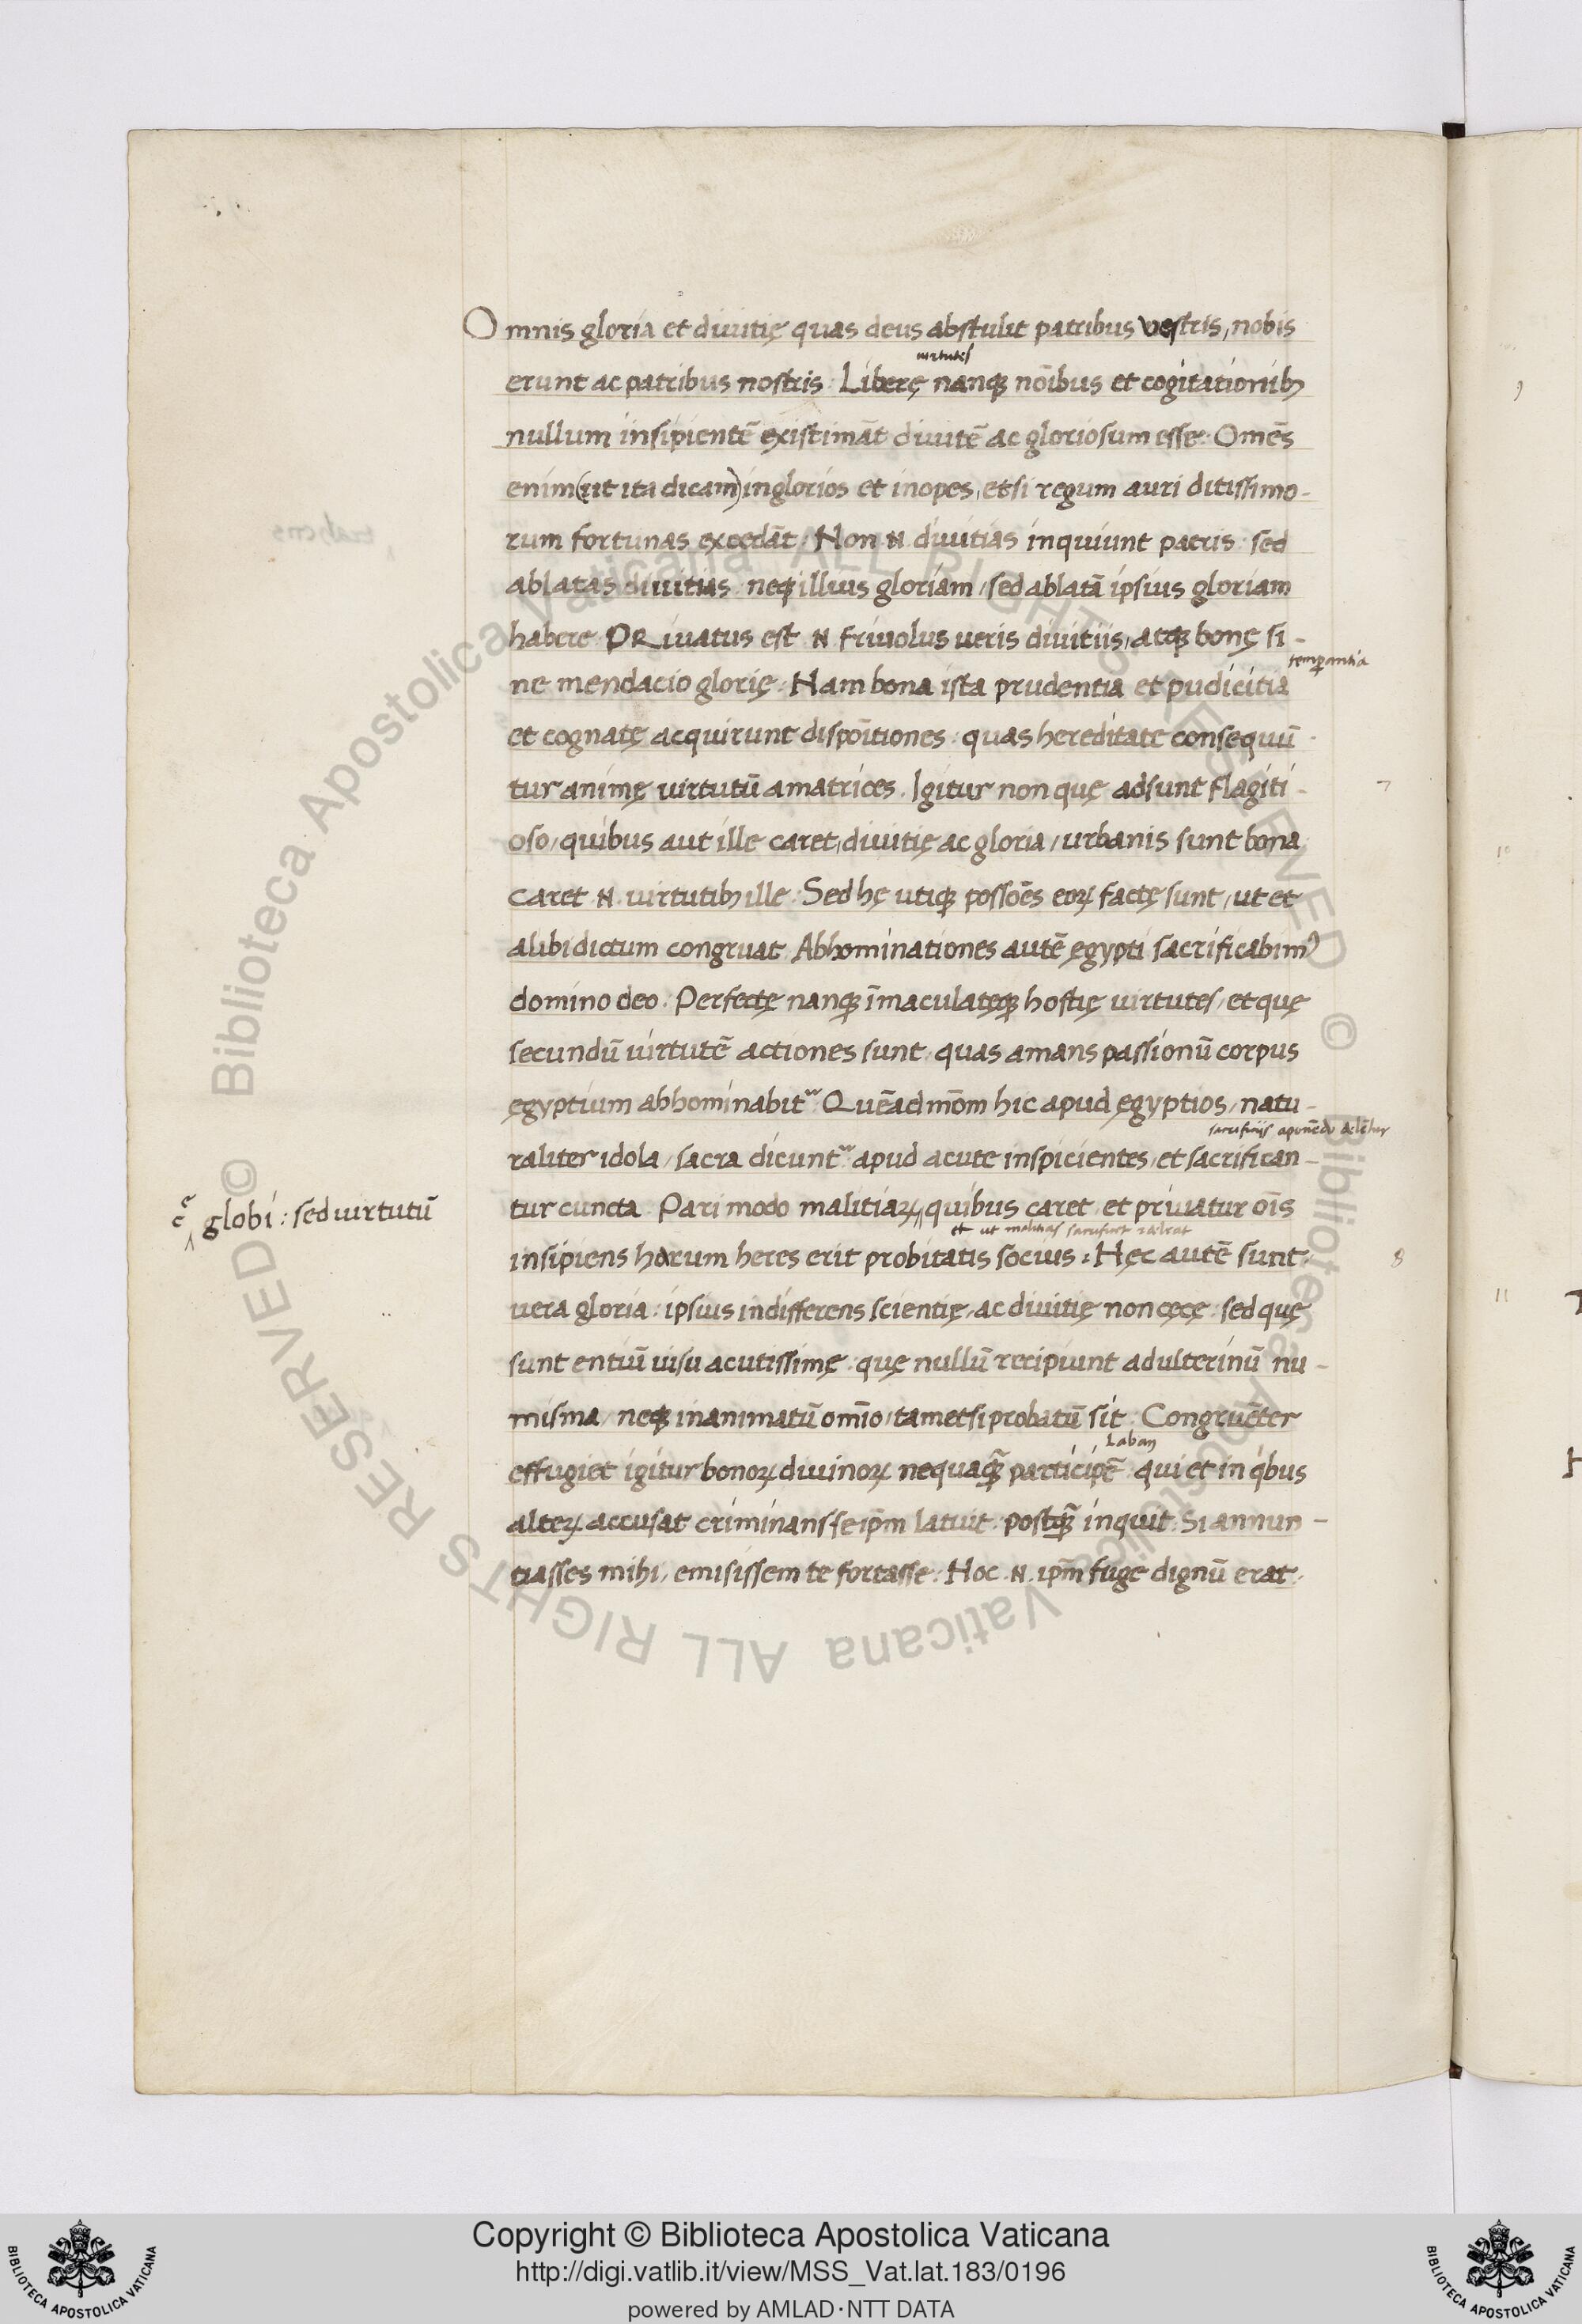 Omnis gloria et diuitię quas deus abstulit patribus vestris, nobis
virtutes
erunt ac patribus nostris. Liberę nanq; nōibus et cogitationib;
nullum insipientē existimāt diuitē ac gloriosum esse. Omēs
enim (ut ita dicam) inglorios et inopes, etsi regum auri ditissimo-
rum fortunas excedāt. Non .N. diuitias inquiunt patris: sed
ablatas diuitias: neq; illius gloriam, sed ablatā ipsius gloriam
habere. PRiuatus est .N. friuolus ueris diuitiis, atq; bonę si-
temperantia
ne mendacio glorię. Nam bona ista prudentia et pudicitia
et cognatę acquirunt dispoītiones: quas hereditate consequū-
tur animę uirtutū amatrices. Igitur non quę adsunt flagiti-
oso, quibus aut ille caret, diuitię ac gloria, urbanis sunt bona
caret .N. uirtutib; ille. Sed hę utiq; possōēs eoꝝ factę sunt, ut et
alibi dictum congruat. Abhominationes autē ęgypti sacrificabimꝰ
domino deo. Perfectę nanq; īmaculatęq; hostię uirtutes, et quę
secundū uirtutē actiones sunt: quas amans passionū corpus
ęgyptium abhominabitᵘʳ Quēadmōm hic apud ęgyptios, natu-
raliter idola, sacra dicuntᵘʳ apud acute inspicientes, et sacrifican-
ē globi: sed uirtutū
tur cuncta. Pari modo malitiaꝝ, quibus caret et priuatur oīs
insipiens harum heres erit probitatis socius: Hęc autē sunt
uera gloria: ipsius indifferens scientię, ac diuitię non cęcę: sed quę
sunt entiū uisu acutissimę: quę nullū recipiunt adulterinū nu-
misma, neq; inanimatū omīo, tametsi probatū sit. Congruēter
Laban
effugiet igitur bonoꝝ diuinoꝝ nequaq̄; participē qui et in q̇bus
alteꝝ accusat criminans, seip̄m latuit: postq̄; inquit: Si annun-
tiasses mihi, emisissem te fortasse. Hoc .N. ip̄m fuge dignū erat.
7
8
Copyright © Biblioteca Apostolica Vaticana
http://digi.vatlib.it/view/MSS_Vat.lat.183/0196
powered by AMLAD·NTT DATA